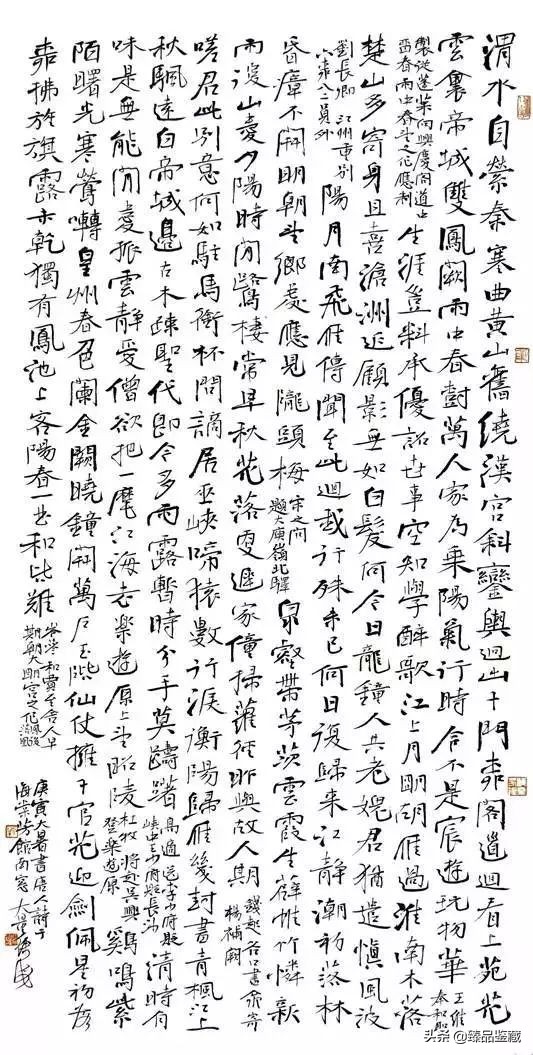 渭水自縈秦塞曲黄山舊繞漢宮斜鑾輿迥出千門柳閣道迴看上苑花
雲裏帝城雙鳳闕雨中春樹萬人家為乘陽氣行時令不是宸遊玩物華 王維奉和聖
製從蓬萊向興慶閣道中留春雨中春望之作應制 生涯豈料承優詔世事空知學醉歌江上月明胡雁過淮南木落
楚山多寄身且喜滄洲近顧影無如白髮何今日龍鍾人共老媿君猶遣慎風波
劉長卿江州重别薛六柳八二員外 陽月南飛雁傳聞至此迴我行殊未已何日復歸來江静潮初落林
昏瘴不開明朝望鄉處應見隴頭梅 宋之問題大庾嶺北驛 泉壑帶茅茨雲霞生薜帷竹憐新
雨後山愛夕陽時閒鷺棲常早秋花落更遲家僮掃蘿徑昨與故人期 錢起谷口書齋寄楊補闕
嗟君此别意何如駐馬銜杯問謫居巫峽啼猿數行淚衡陽歸雁幾封書青楓江上
秋颿遠白帝城邊古木疎聖代即今多雨露暫時分手莫躊躇 高適送李少府貶峽中王少府貶長沙 清時有
味是無能閒愛孤雲静愛僧欲把一麾江海去樂遊原上望昭陵 杜牧將赴吳興登樂遊原 雞鳴紫
陌曙光寒鶯囀皇州春色闌金闕曉鐘開萬户玉階仙仗擁千官花迎劍佩星初落
柳拂旌旗露未乾獨有鳳池上客陽春一曲和皆難 岑參和賈至舍人早朝大明宮之作
庚寅大暑書唐人詩于
海棠芳館南窗
头条 @臻品鉴藏